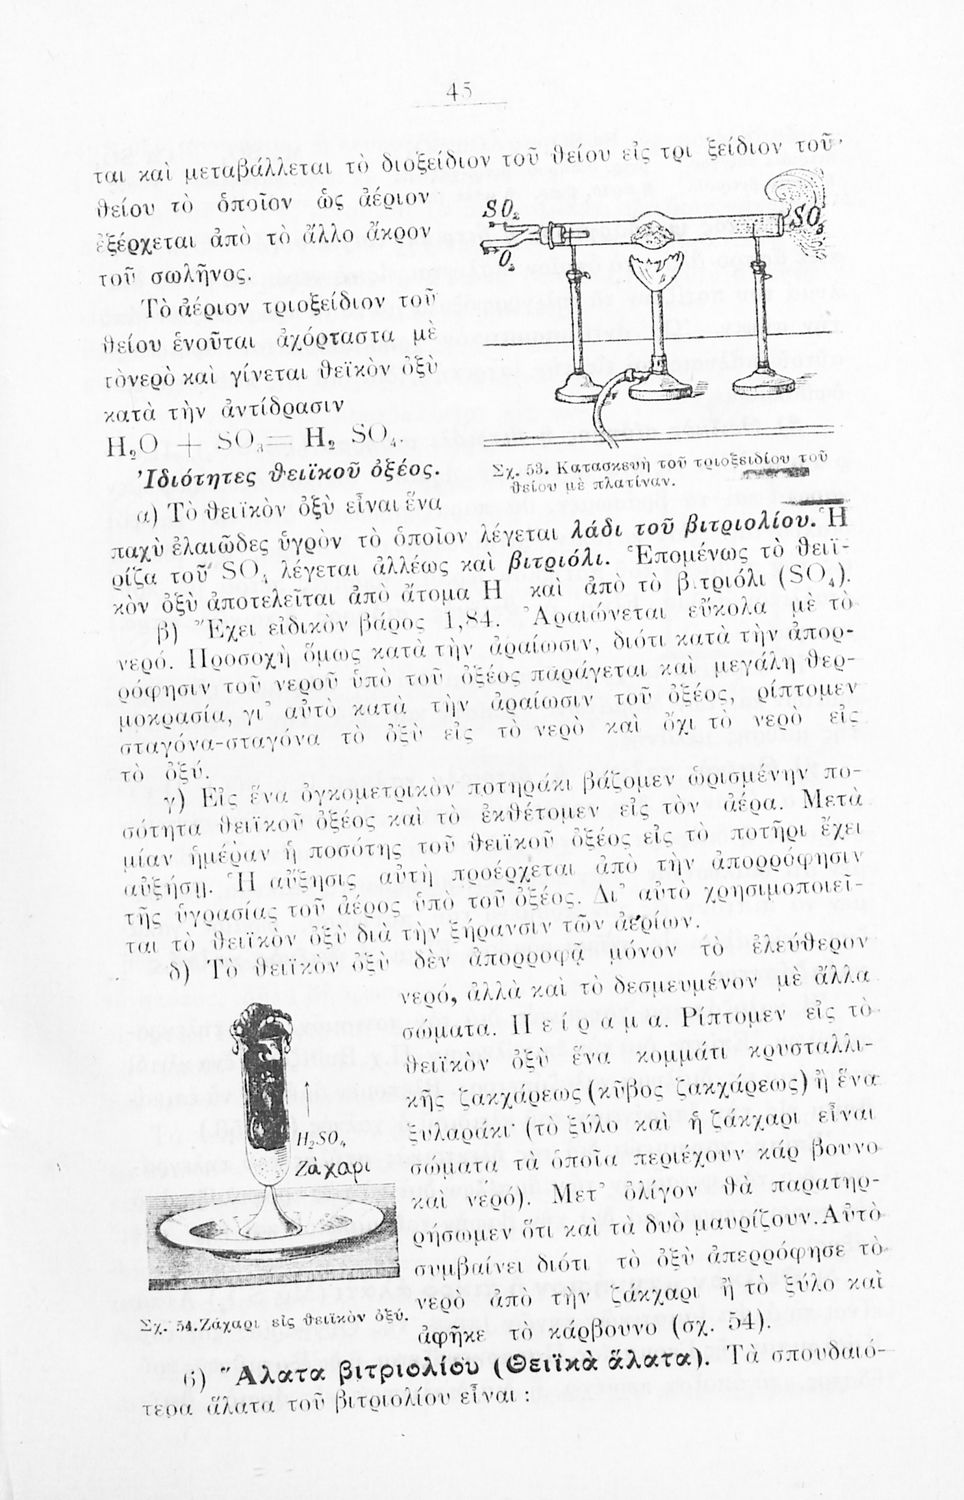 45
ται καὶ μεταβάλλεται τὸ διοξείδιον τοῦ θείου εἰς τρι ξείδιον τοῦ
θείου τὸ ὁποῖον ὡς ἀέριον
ἐξέρχεται ἀπὸ τὸ ἄλλο ἄκρον
τοῦ σωλῆνος.
Τὸ ἀέριον τριοξείδιον τοῦ
θείου ἑνοῦται ἀχόρταστα μὲ
τὸνερὸ καὶ γίνεται θεϊκὸν ὀξὺ
κατὰ τὴν ἀντίδρασιν
H₂O + SO₃ = H₂ SO₄.
SO₂
O₂
SO₃
Σχ. 53. Κατασκευὴ τοῦ τριοξειδίου τοῦ
θείου μὲ πλατίναν.
Ἰδιότητες θειϊκοῦ ὀξέος.
α) Τὸ θειϊκὸν ὀξὺ εἶναι ἕνα
παχὺ ἐλαιῶδες ὑγρὸν τὸ ὁποῖον λέγεται λάδι τοῦ βιτριολίου. Ἡ
ρίζα τοῦ SO₄ λέγεται ἀλλέως καὶ βιτριόλι. Ἑπομένως τὸ θειϊ-
κὸν ὀξὺ ἀποτελεῖται ἀπὸ ἄτομα H καὶ ἀπὸ τὸ β.τριόλι (SO₄).
β) Ἔχει εἰδικὸν βάρος 1,84. Ἀραιώνεται εὔκολα μὲ τὸ
νερό. Προσοχὴ ὅμως κατὰ τὴν ἀραίωσιν, διότι κατὰ τὴν ἀπορ-
ρόφησιν τοῦ νεροῦ ὑπὸ τοῦ ὀξέος παράγεται καὶ μεγάλη θερ-
μοκρασία, γι᾽ αὐτὸ κατὰ τὴν ἀραίωσιν τοῦ ὀξέος, ρίπτομεν
σταγόνα-σταγόνα τὸ ὀξὺ εἰς τὸ νερὸ καὶ ὄχι τὸ νερὸ εἰς
τὸ ὀξύ.
γ) Εἰς ἕνα ὀγκομετρικὸν ποτηράκι βάζομεν ὡρισμένην πο-
σότητα θειϊκοῦ ὀξέος καὶ τὸ ἐκθέτομεν εἰς τὸν ἀέρα. Μετὰ
μίαν ἡμέραν ἡ ποσότης τοῦ θειϊκοῦ ὀξέος εἰς τὸ ποτῆρι ἔχει
αὐξήσῃ. Ἡ αὔξησις αὐτὴ προέρχεται ἀπὸ τὴν ἀπορρόφησιν
τῆς ὑγρασίας τοῦ ἀέρος ὑπὸ τοῦ ὀξέος. Δι᾽ αὐτὸ χρησιμοποιεῖ-
ται τὸ θειϊκὸν ὀξὺ διὰ τὴν ξήρανσιν τῶν ἀερίων.
δ) Τὸ θειϊκὸν ὀξὺ δὲν ἀπορροφᾷ μόνον τὸ ἐλεύθερον
νερό, ἀλλὰ καὶ τὸ δεσμευμένον μὲ ἄλλα
σώματα. Πείραμα. Ρίπτομεν εἰς τὸ
θειϊκὸν ὀξὺ ἕνα κομμάτι κρυσταλλι-
κῆς ζακχάρεως (κῦβος ζακχάρεως) ἢ ἕνα
ξυλαράκι (τὸ ξύλο καὶ ἡ ζάκχαρι εἶναι
σώματα τὰ ὁποῖα περιέχουν κάρ βουνο
καὶ νερό). Μετ᾽ ὀλίγον θὰ παρατηρ-
ρήσωμεν ὅτι καὶ τὰ δυὸ μαυρίζουν. Αὐτὸ
συμβαίνει διότι τὸ ὀξὺ ἀπερρόφησε τὸ
νερὸ ἀπὸ τὴν ζάκχαρι ἢ τὸ ξύλο καὶ
ἀφῆκε τὸ κάρβουνο (σχ. 54).
H₂SO₄
Ζάχαρι
Σχ. 54. Ζάχαρι εἰς θειϊκὸν ὀξύ.
6) Ἅλατα βιτριολίου (Θειϊκὰ ἅλατα). Τὰ σπουδαιό-
τερα ἅλατα τοῦ βιτριολίου εἶναι :